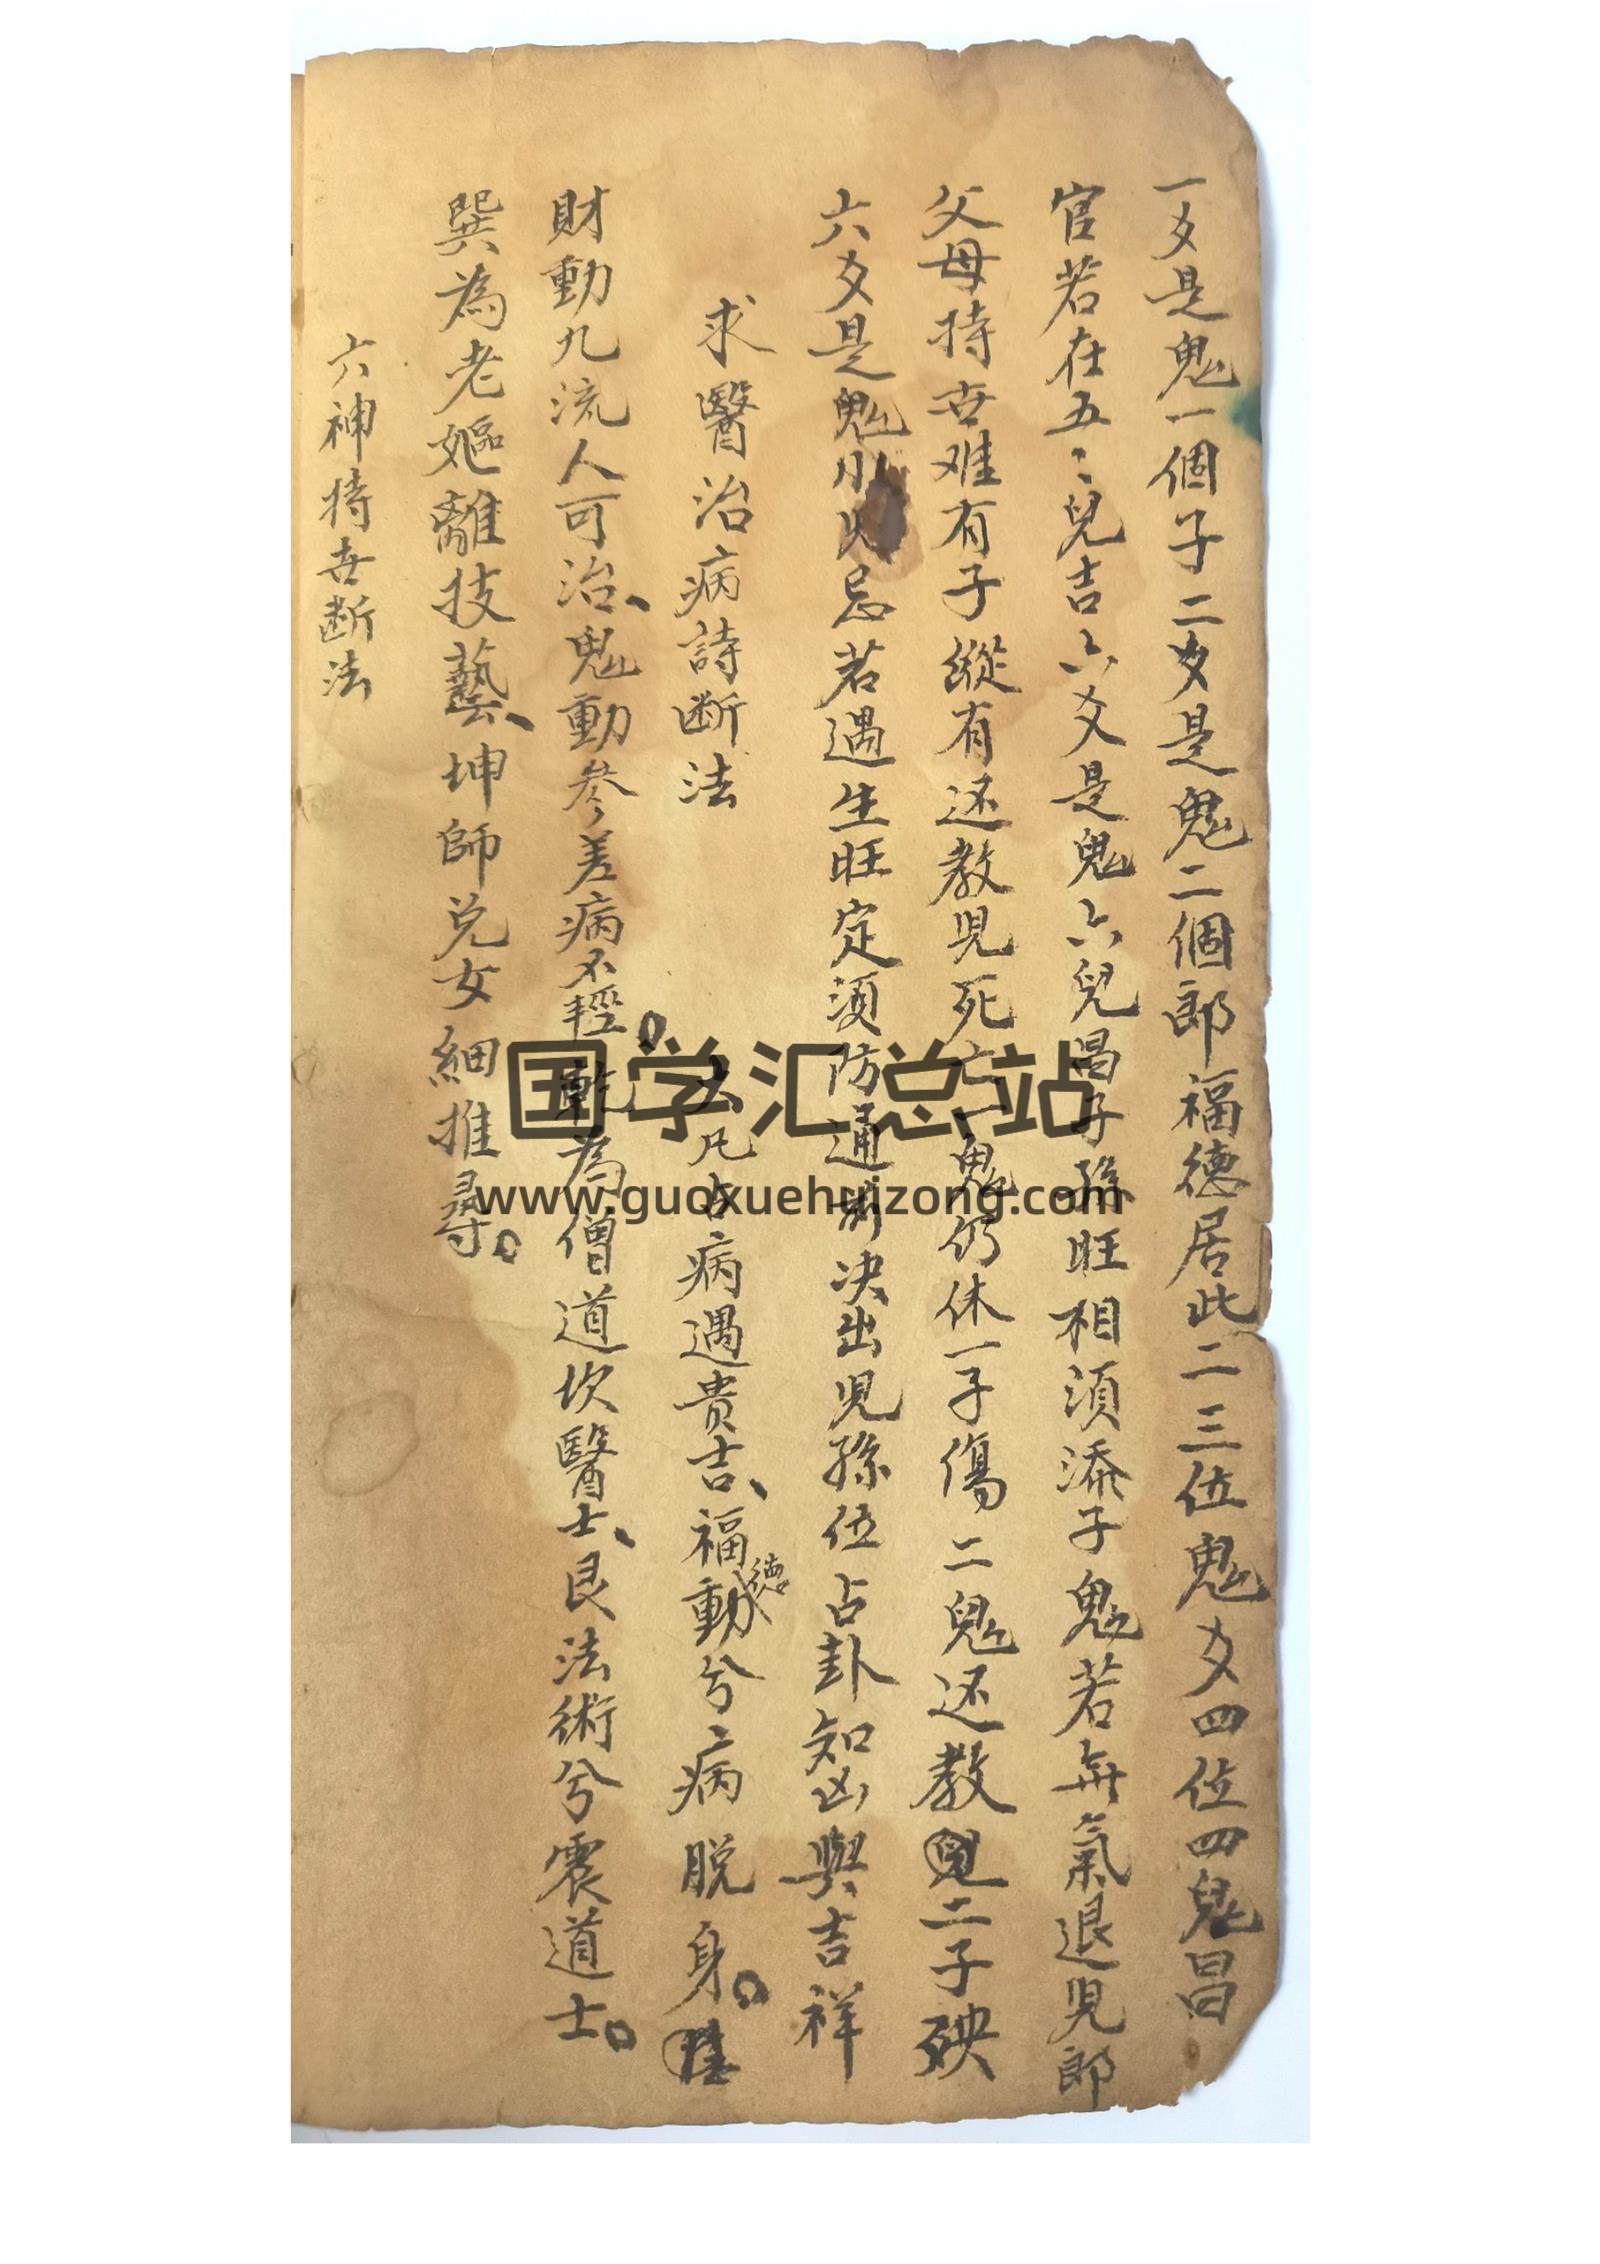 一爻是鬼一個子二爻是鬼二個郎福德居此二三位鬼爻四位四鬼昌
官若在五〻兒吉六爻是鬼六兒昌子孫旺相須添子鬼若無氣退兒郎
父母持世难有子縱有还教兒死亡一鬼仍休一子傷二鬼还教二子殃
六爻是鬼忌若遇生旺定須防通决出兒孫位占卦知凶與吉祥
求醫治病詩断法
大凡占病遇貴吉、福德動兮病脱身。
財動九流人可治、鬼動參差病不輕。乾為僧道坎醫士、艮法術兮震道士。
巽為老嫗離技藝、坤師兑女細推尋。
六神持世断法
国学汇总站
www.guoxuehuizong.com